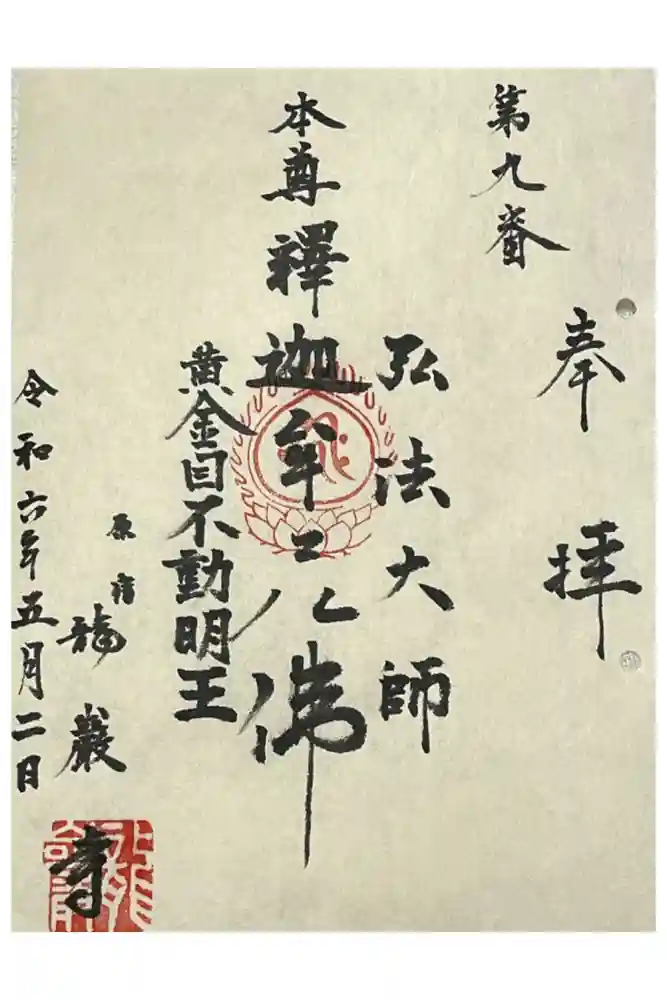 奉拝
第九番
弘法大師
本尊釋迦牟ニ仏
黄金目不動明王
原宿
龍巖寺
令和六年五月二日